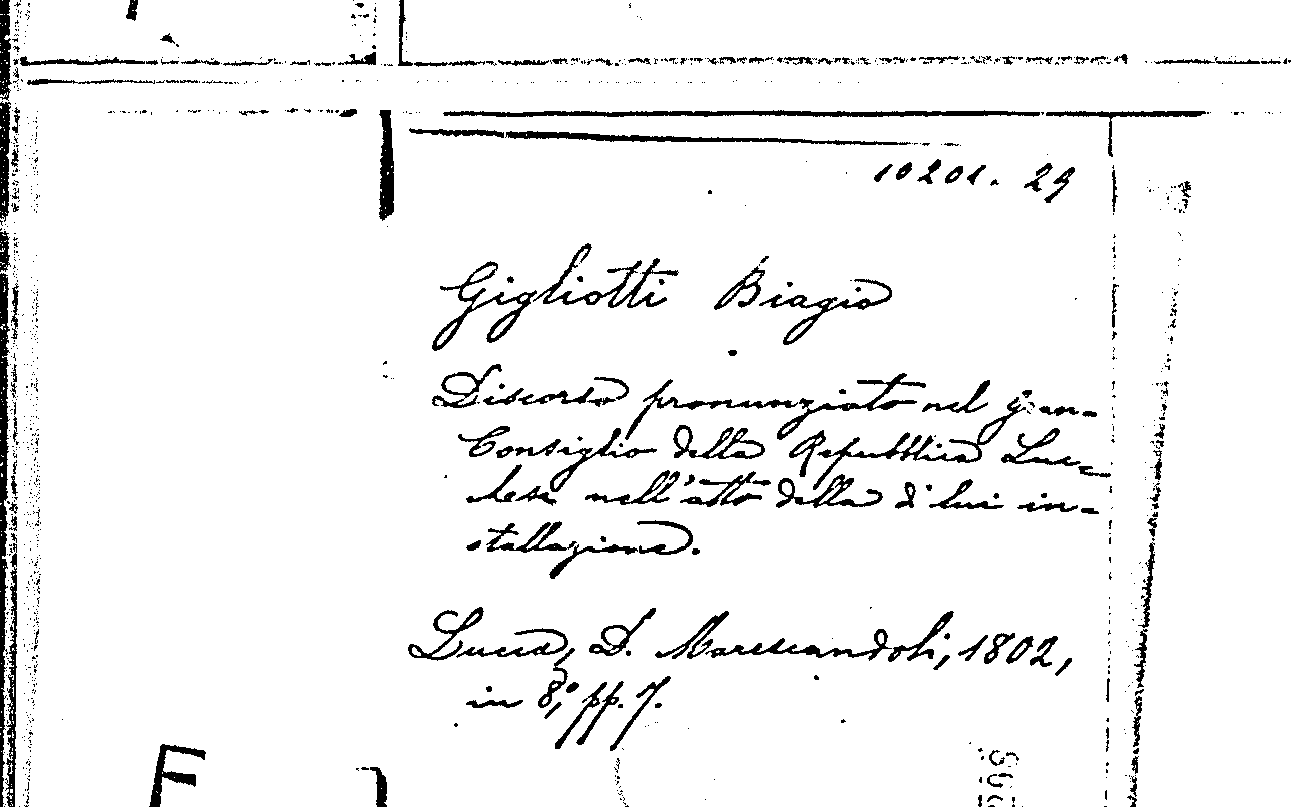 10201. 29
Gigliotti Biagio
Discorso pronunziato nel gran
Consiglio della Repubblica Luc-
chese nell'atto della di lui in-
stallazione.
Lucca, D. Marescandoli, 1802,
in 8,° pp. 7.
F